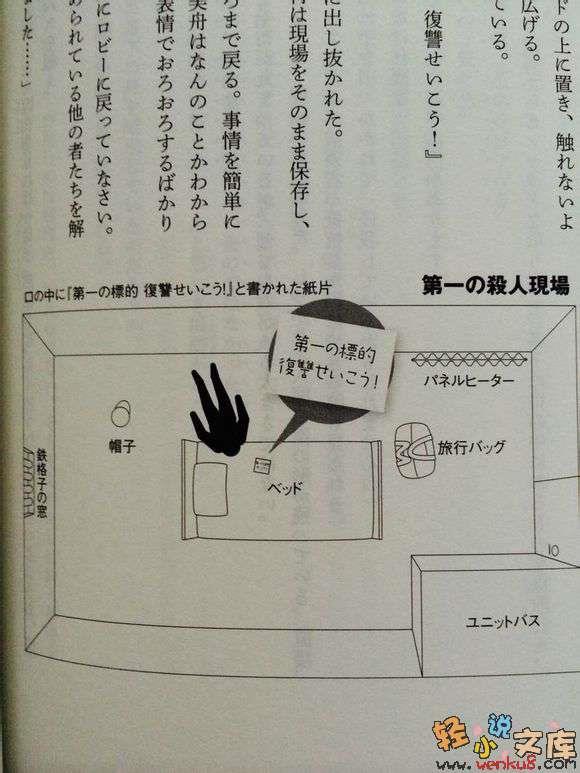 ドの上に置き、触れないよ
広げる。
ている。
復讐せいこう！』
に出し抜かれた。
は現場をそのまま保存し、
ろまで戻る。事情を簡単に
美舟はなんのことかわから
表情でおろおろするばかり
にロビーに戻っていなさい。
められている他の者たちを解
ました……」
第一の殺人現場
口の中に『第一の標的 復讐せいこう!』と書かれた紙片
第一の標的
復讐せいこう！
パネルヒーター
帽子
旅行バッグ
鉄格子の窓
ベッド
10
ユニットバス
轻小说文库
www.wenku8.com